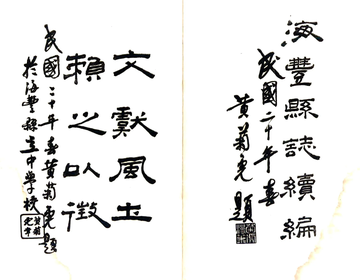 海豐縣誌續編
民國二十年春
黃菊光題
文獻風土
賴之以徵
民國二十年春黃菊光題
於海豐縣立中學校